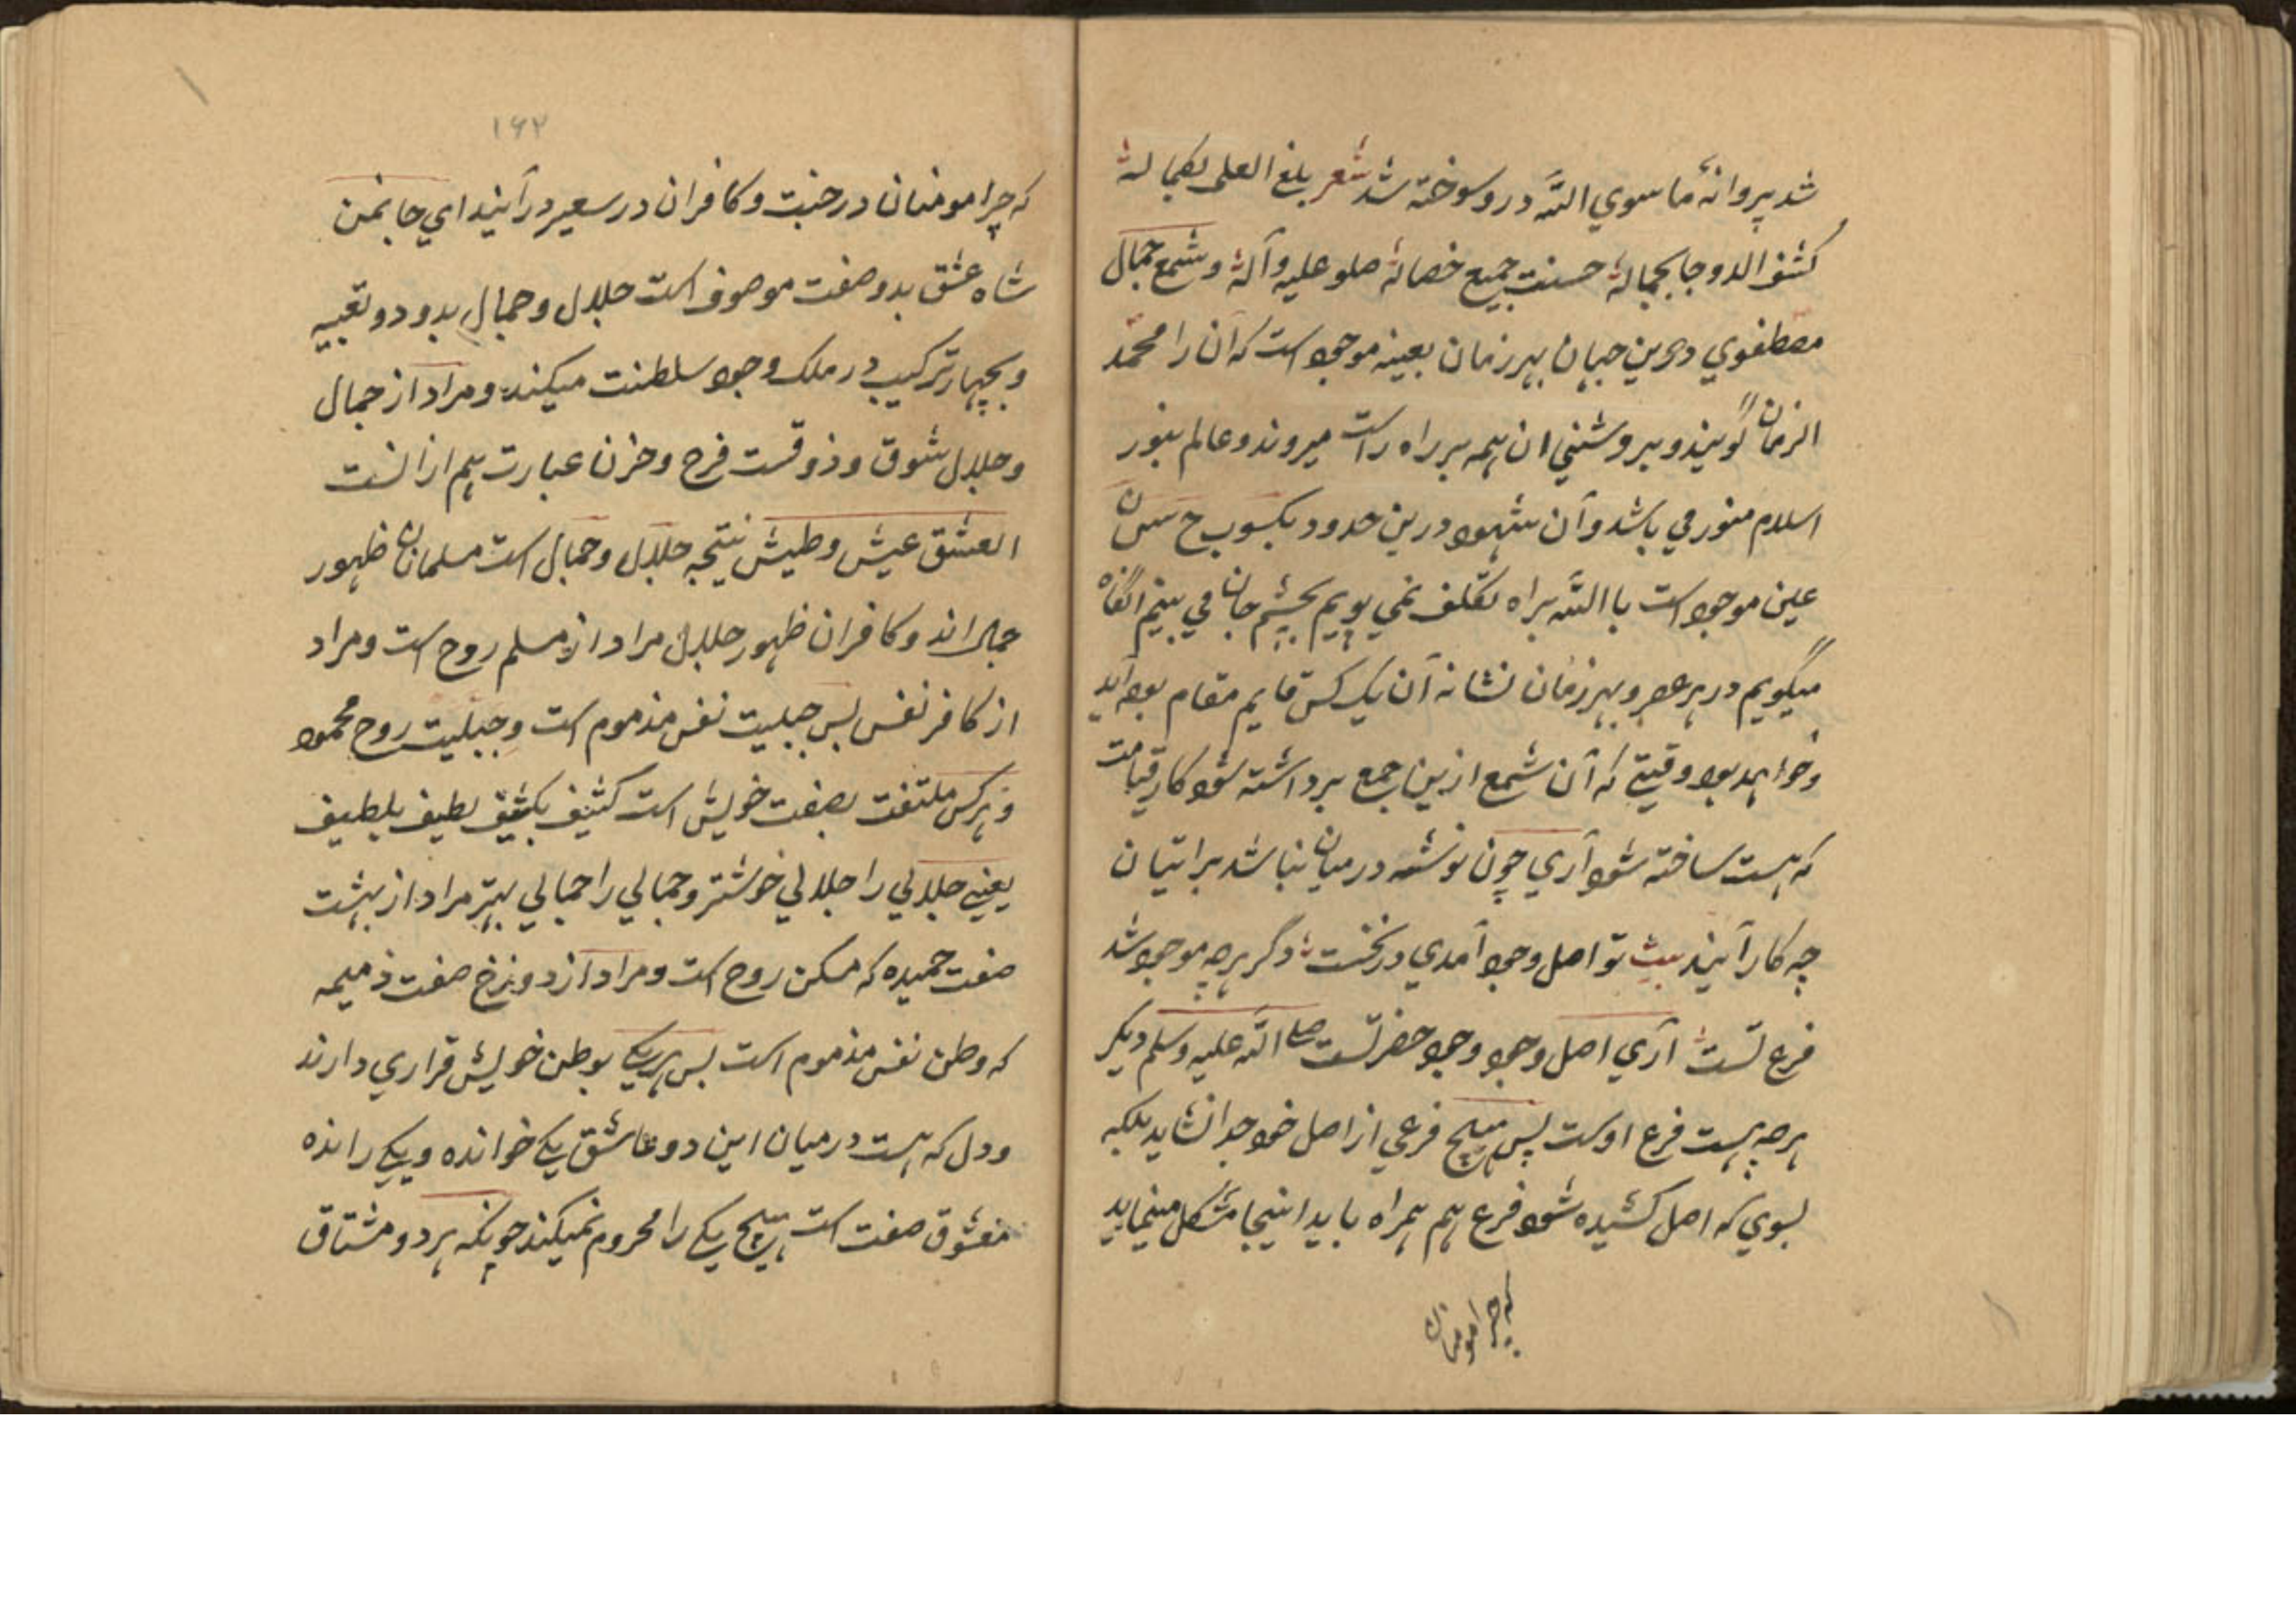 شد پروانهٔ ما سوي اللّه درو سوخته شد شعر بلغ العلى بكماله
كشف الدوجا بجماله حسنت جميع خصاله صلو عليه وآله وشمع جمال
مصطفوي درين جهان بهر زمان بعينه موجود است كه آن را محمّد
الزمان گويند و بروشنئ ان همه بر راه راست ميروند و عالم بنور
اسلام منور مي باشد و آن شهود درين حدود
عين موجود است با اللّه براه تكلف نمي پويم بچشم جان مي بينم انگاه
ميگويم در هر عصر و بهر زمان نشانه آن يك كس قايم مقام بود آيد
و خواهد بود وقتيكه آن شمع ازين جمع برداشته شود كار قيامت
كه هست ساخته شود آري چون نوشه در ميان نباشد براتيان
چه كار آيند بيت تو اصل وجود آمدي در نخست دگر هرچه موجود شد
فرع تست آري اصل وجود وجود حضرتست صلى اللّه عليه وسلم ديگر
هرچه هست فرع اوست پس هيچ فرعي از اصل خود جدا نشايد بلكه
بسوي كه اصل كشيده شود فرع هم همراه بايد اينجا مشكل مينمايد
كه چرا مومنان
۱۶۲
كه چرا مومنان در جنت و كافران در سعير در آيند اي جانمن
شاه عشق بدو صفت موصوف است جلال و جمال بدو دو تعبيه
و بچهار تركيب در ملك وجود سلطنت ميكند و مراد از جمال
و جلال شوق و ذوقست فرح و حزن عبارت هم ازانست
العشق عيش و طيش نتيجه جلال و جمال است مسلمانان ظهور
جمال اند و كافران ظهور جلال مراد از مسلم روح است و مراد
از كافر نفس پس جبليت نفس مذموم است و جبليت روح محمود
و هركس ملتفت بصفت خويش است كثيف بكثيف لطيف بلطيف
يعني جلالي را جلالي خوشتر و جمالي را جمالي بهتر مراد از بهشت
صفت حميده كه مسكن روح است و مراد از دوزخ صفت ذميمه
كه وطن نفس مذموم است پس هر يكے بوطن خويش قراري دارند
و دل كه هست درميان اين دو عاشق يكے خوانده و يكے رانده
معشوق صفت است هيچ يكے را محروم نميكند چونكه هر دو مشتاق